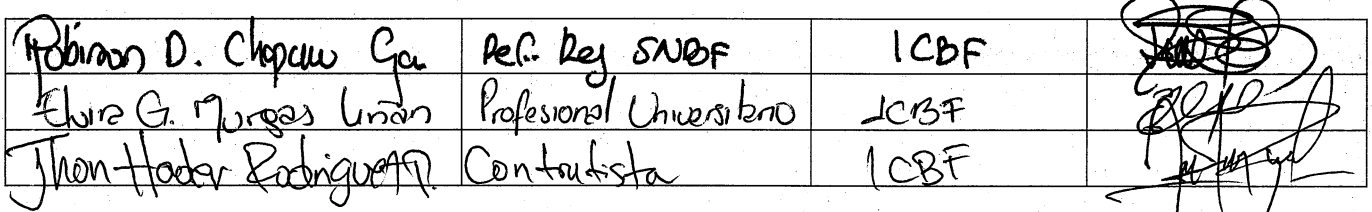 Robinson D. Chapauw Ga. Ref. Reg SNBF ICBF
Elvira G. Murgas Liñan Profesional Universitario ICBF
Jhon Hader Rodriguez P. Contratista ICBF